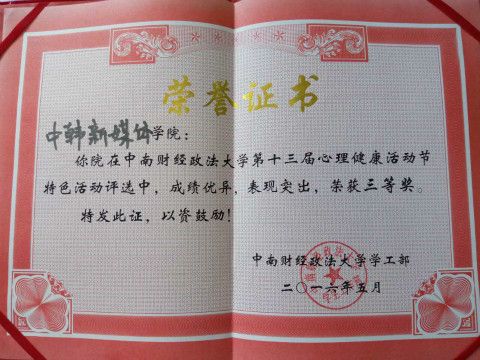 荣誉证书
中韩新媒体学院：
你院在中南财经政法大学第十三届心理健康活动节
特色活动评选中，成绩优异，表现突出，荣获三等奖。
特发此证，以资鼓励！
中南财经政法大学学工部
二〇一六年五月